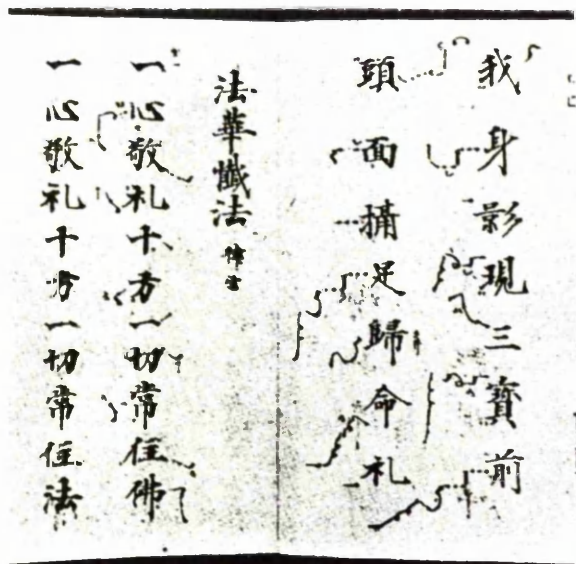 我身影現三寶前
頭面足歸命礼
法華懺法
一心敬礼十方一切常住佛
一心敬礼十方一切常住法